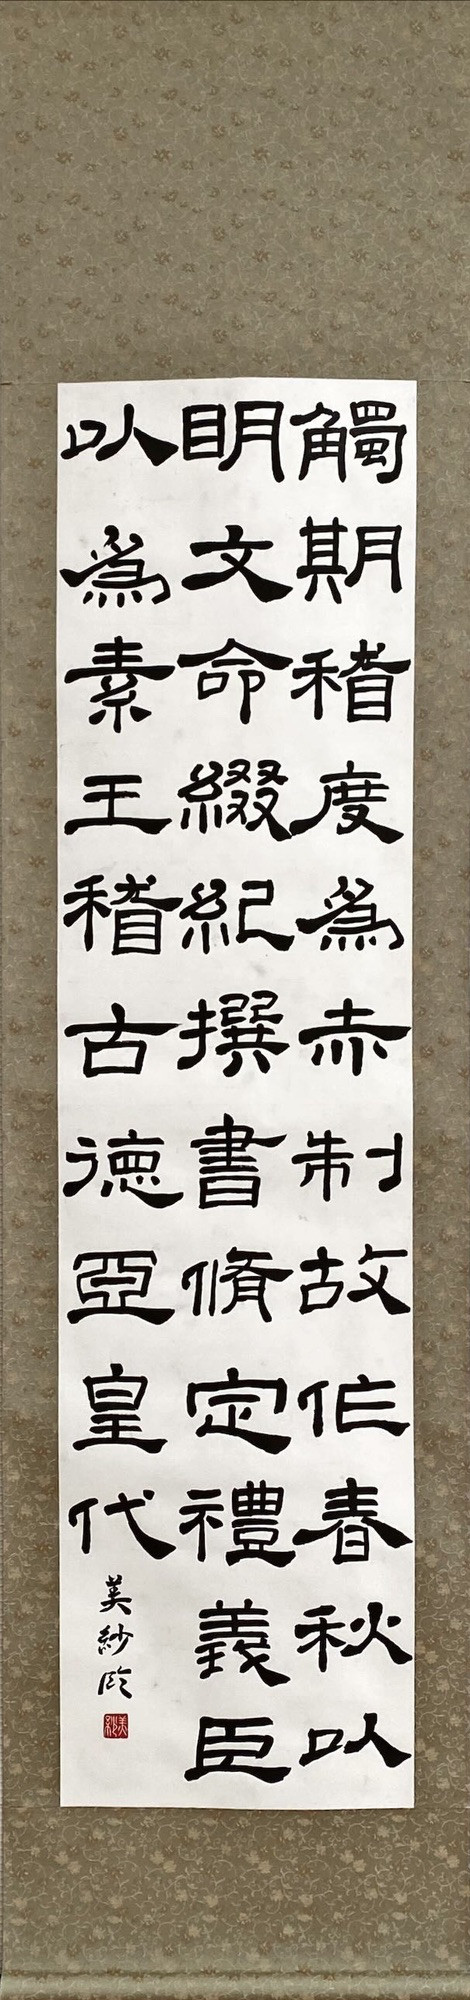 觸期稽度爲赤制故作春秋以
明文命綴紀撰書脩定禮義臣
以爲素王稽古德亞皇代
美紗臨
美紗